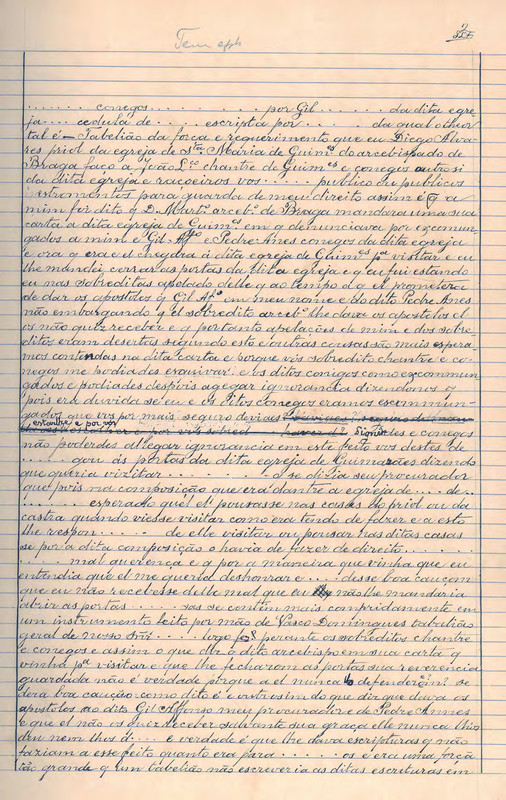 Tem eph
....... conegos ............ por Gil ......... da dita egre
ja .... cedula de ..... escripta por ......... da qual o theor
tal é — Tabelião da força e requerimento que eu Diogo Alva
res priol da egreja de S.ta Maria de Guim.es do arcebispado de
Braga faço a João L.ço chantre de Guim.es e conegos outro si
da dita egreja e raçoeiros vos ..... publico ou publicos
estromentos para guarda de meu direito assim é q a
mim foi dito q D. Martº arcebº de Braga mandara uma sua
carta á dita egreja de Guim.es em q denunciava por excomun
gados a mim e Gil Affº e Pedre Anes conegos da dita egreja
e ora q era el chegára á dita egreja de Guim.es pª visitar e eu
lhe mandei cerrar as portas da dita egreja e q eu fui estando
eu nas sobreditas apelado delle q ao tempo d q el prometera
de dar os apostolos q Gil Affº em meu nome e do dito Pedre Anes
não embargando q el sobredito arcebº lhe dava os apostolos el
os não quiz receber e q portanto apelações de mim e dos sobre
ditos eram desertas segundo esto e outras cousas são mais espera
mos contendas na dita carta e porque vós sobredito chantre e co-
negos me podiades esquivar e os ditos conigos como excommun
gados e podiades despois alegar ignorancia dizendo nos q
pois era duvida se eu e os ditos conegos eramos excommun-
gados que vos por mais seguro deviades
e chantre e por vos Sionistres e conegos
não poderdes allegar ignorancia em este feito vos destes de
...... gou ás portas da dita egreja de Guimarães dizendo
que queria vizitar ........ O se dizia seu procurador
que pois na composição que era dantre a egreja de .... de ...
......... esperado quel el pousasse nas casas do priol ou da
castra quando viesse visitar como era teudo de fazer e a esto
lhe respon ....... de elle visitar ou pousar nas ditas casas
se por a dita composição o havia de fazer de direito .......
...... mal querença e q por a maneira que vinha que eu
entendia que el me queria deshonrar e .... desse boa cauçom
que eu não recebesse delle mal que eu não lhe mandaria
abrir as portas ........ sas se contêm mais compridamente em
um instrumento feito por mão de Vasco Domingues tabelião
geral de nosso Snr ..... logo perante os sobreditos chantre
e conegos e assim o que diz o dito arcebispo em sua carta q
vinha pª visitar e que lhe fecharom as portas sua reverencia
guardada não é verdade porque a el nunca defender se
dera boa caução como dito é e outro sim do que diz que dava os
apostolos ao dito Gil Affonso meu procurador e de Pedre Annes
e que el não os quiz receber salvante sua graça elle nunca lhos
deu nem lhos d .... e verdade é que lhe dava escripturas q não
faziam a esse feito quanto era para ....... os e era uma força
tão grande q um tabelião não escreveria as ditas escrituras em